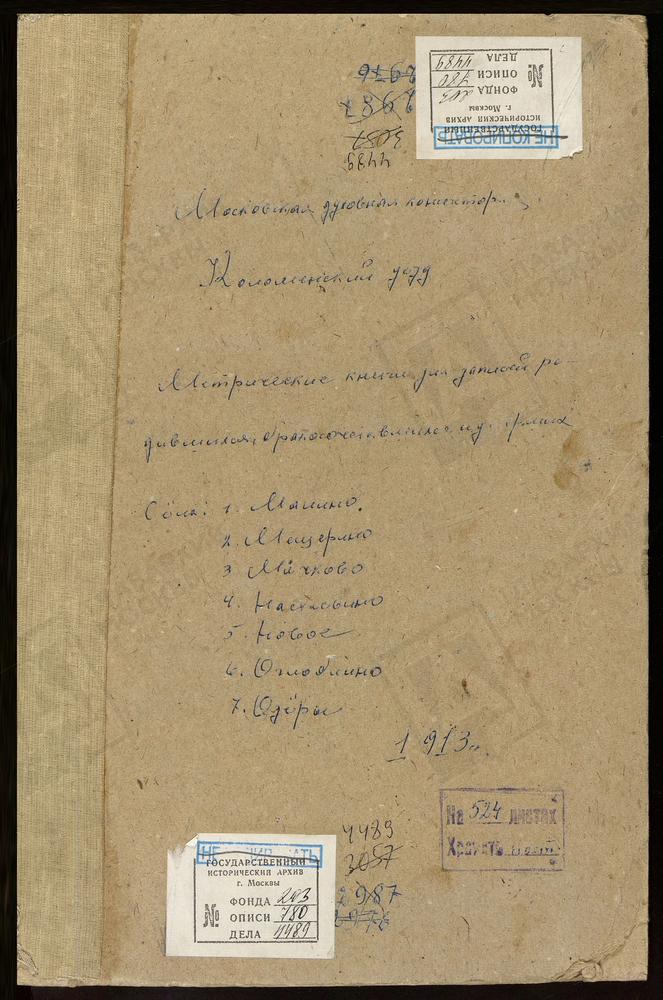 2976
2987
3087
4489
№
ФОНДА 203
ОПИСИ 780
ДЕЛА 4489
г. Москвы
ИСТОРИЧЕСКИЙ АРХИВ
ГОСУДАРСТВЕННЫЙ
НЕ КОПИРОВАТЬ
Московская духовная консистор.
Коломенский уезд
Метрические книги для записей ро-
дившихся, бракосочетавшихся и умерших
Сёла: 1. Малино.
2. Мещерино
3 Мячково
4. Настасьино
5. Новое
6. Оглоблино
7. Озёры
1913г.
На 524 листах
Хранить пост.
4489
3087
2987
2976
НЕ КОПИРОВАТЬ
ГОСУДАРСТВЕННЫЙ
ИСТОРИЧЕСКИЙ АРХИВ
г. Москвы
№
ФОНДА 203
ОПИСИ 780
ДЕЛА 4489